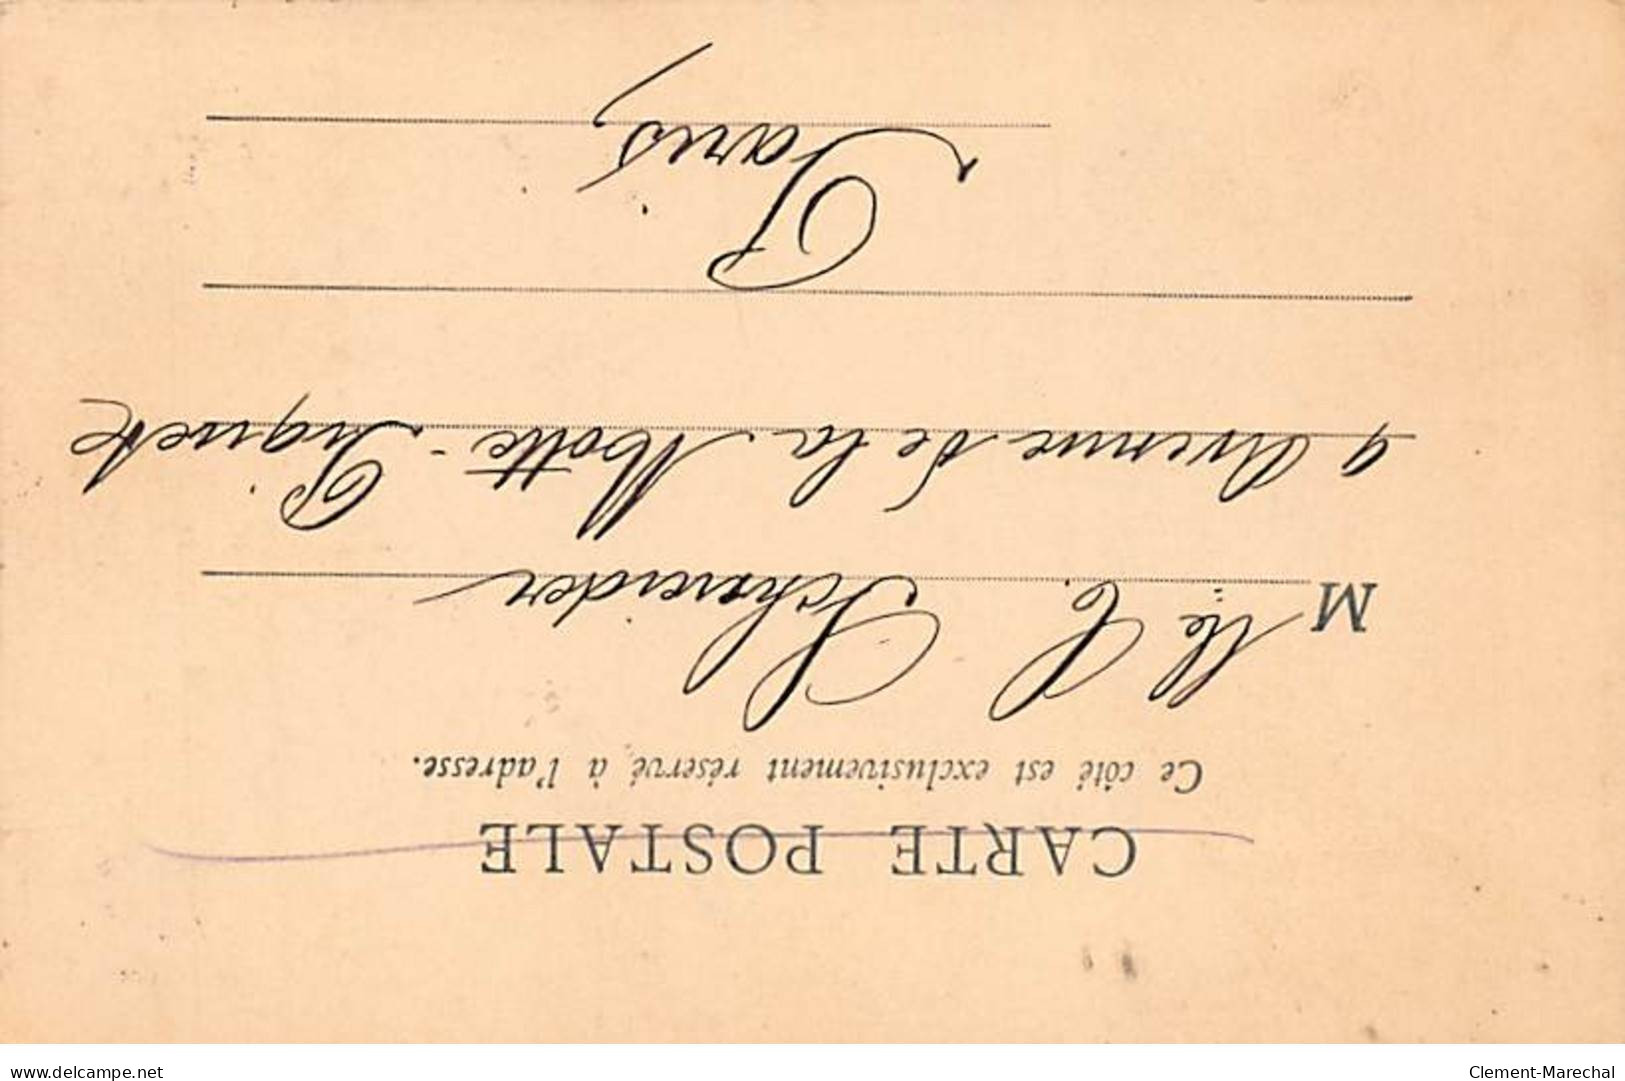 CARTE POSTALE
Ce côté est exclusivement réservé à l'adresse.
M lle C. Schneider
9 Avenue de la Motte-Piquet
Paris,
www.delcampe.net
Clement-Marechal